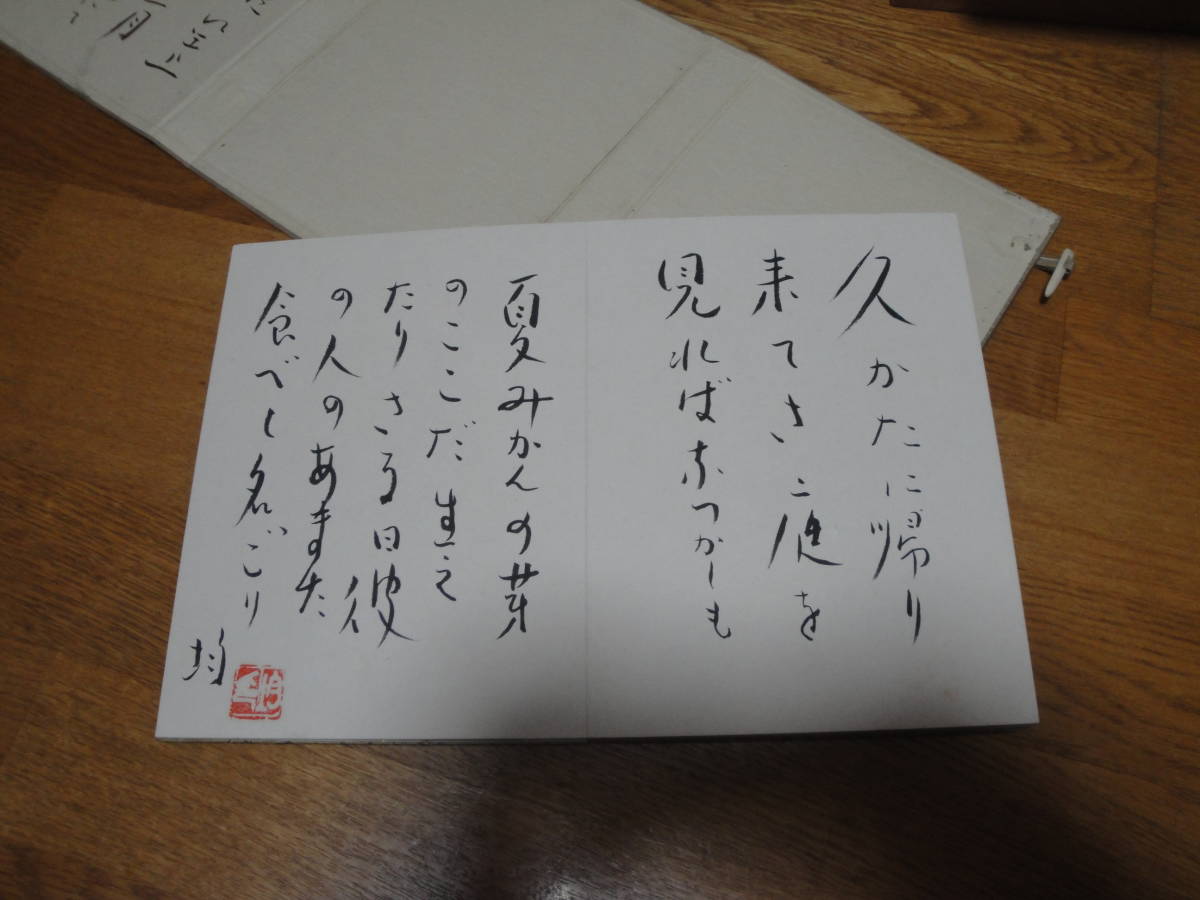 久かたに帰り
来てさ庭を
見ればなつかしも
夏みかんの芽
のここだ生え
たりさる日彼
の人のあまた
食べし名ごり
均